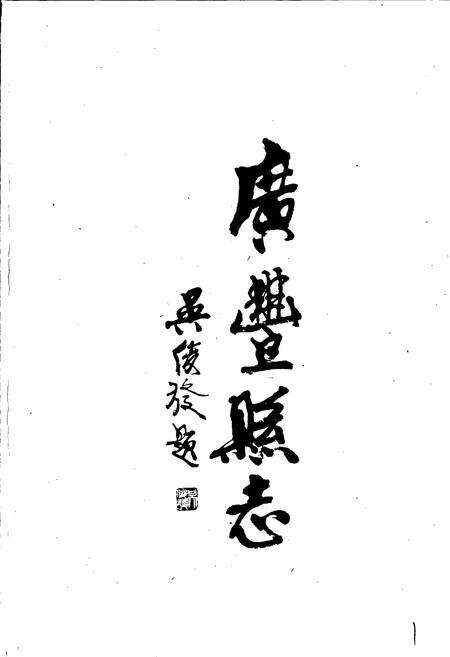 廣豐縣志
吴俊發題